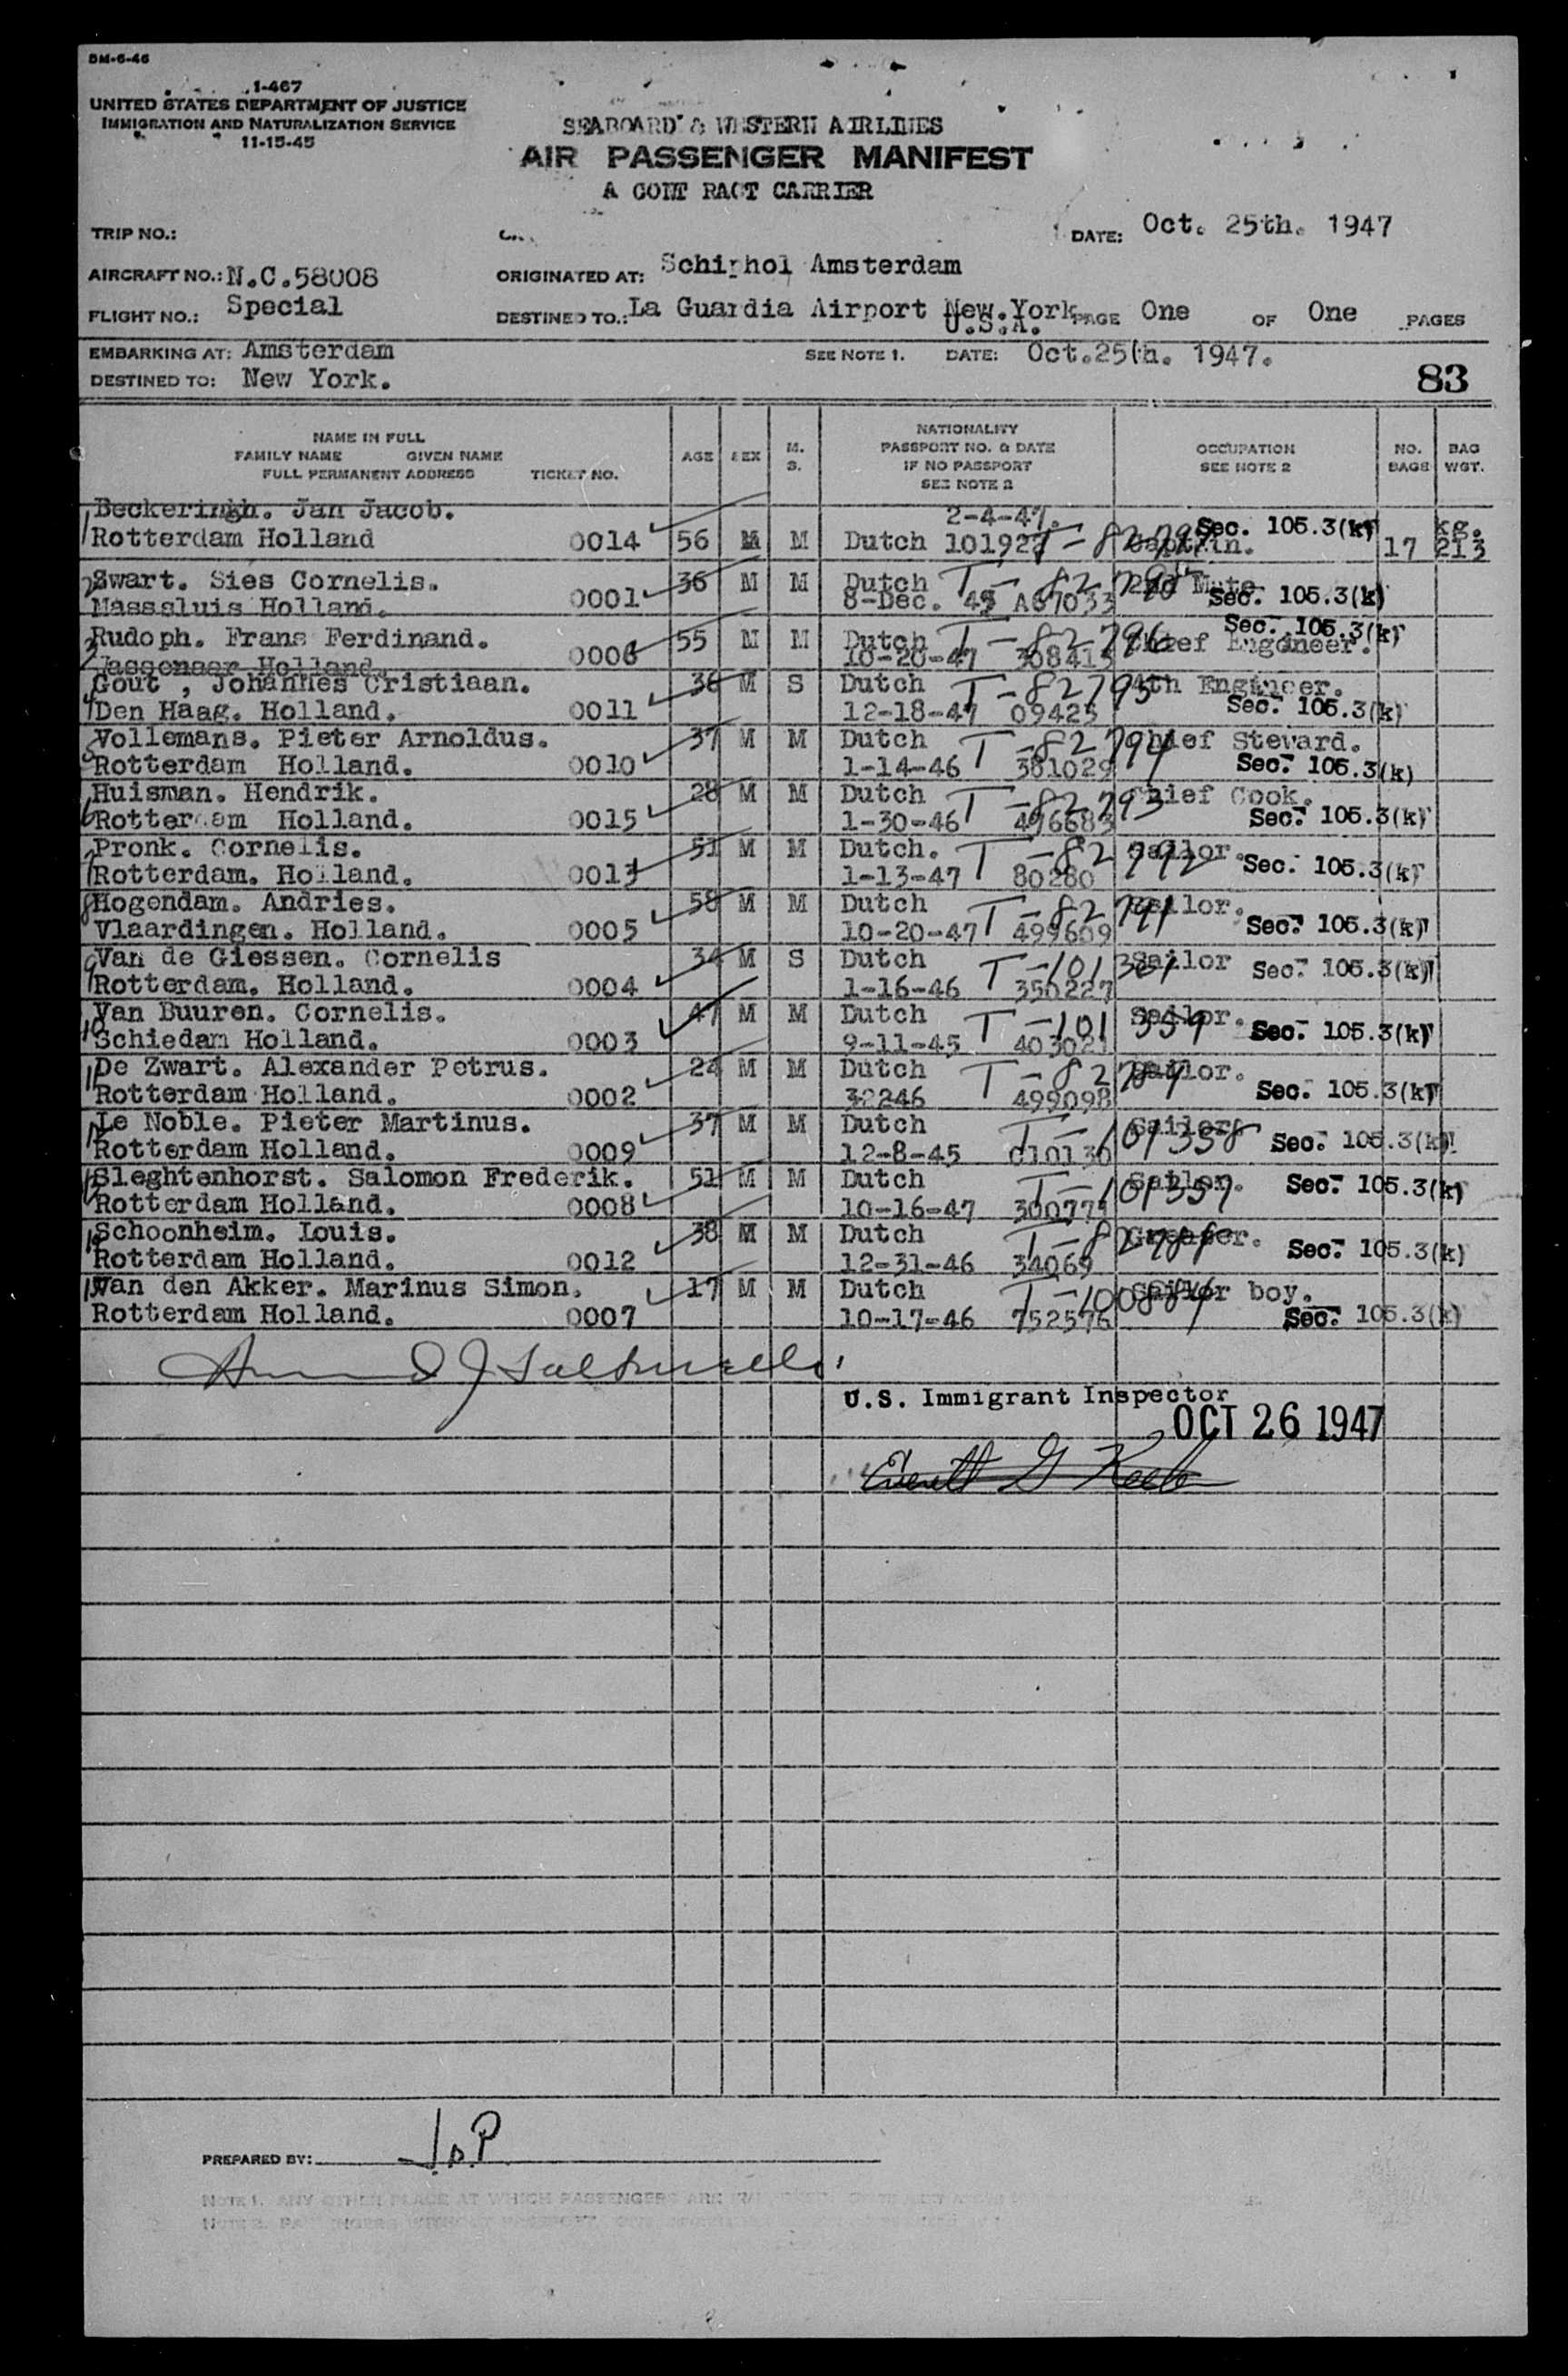 DM-6-46
1-467
UNITED STATES DEPARTMENT OF JUSTICE
IMMIGRATION AND NATURALIZATION SERVICE
11-15-45
SEABOARD & WESTERN AIRLINES
AIR PASSENGER MANIFEST
A CONT RACT CARRIER
TRIP NO.:
DATE: Oct. 25th. 1947
AIRCRAFT NO.: N.C.58008 ORIGINATED AT: Schiphol Amsterdam
FLIGHT NO.: Special DESTINED TO.: La Guardia Airport New.York U.S.A. PAGE One OF One PAGES
EMBARKING AT: Amsterdam SEE NOTE 1. DATE: Oct.25th. 1947.
DESTINED TO: New York.
83
NAME IN FULL
FAMILY NAME GIVEN NAME
FULL PERMANENT ADDRESS TICKET NO.
AGE SEX M. S.
NATIONALITY
PASSPORT NO. & DATE
IF NO PASSPORT
SEE NOTE 2
OCCUPATION
SEE NOTE 2
NO. BAGS
BAG WGT.
1 Beckeringh. Jan Jacob. 2-4-47. Sec. 105.3(k) kg.
Rotterdam Holland 0014 56 M M Dutch Captain. 17 213
2 Zwart. Sies Cornelis. 36 M M Dutch 2nd Mate
Masssluis Holland. 0001 8-Dec. 45 Sec. 105.3(k)
3 Rudoph. Frans Ferdinand. 55 M M Dutch T-82796 Chief Engineer. Sec. 105.3(k)
Wassenaar Holland. 0006 10-20-47 308413
4 Gout , Johannes Cristiaan. 36 M S Dutch T-82795 4th Engineer.
Den Haag. Holland. 0011 12-18-47 Sec. 105.3(k)
5 Vollemans. Pieter Arnoldus. 37 M M Dutch T-82794 Chief Steward.
Rotterdam Holland. 0010 1-14-46 381029 Sec. 105.3(k)
6 Huisman. Hendrik. 28 M M Dutch T-82793 Chief Cook.
Rotterdam Holland. 0015 1-30-46 496683 Sec. 105.3(k)
7 Pronk. Cornelis. 51 M M Dutch. T-82792 Sailor.
Rotterdam. Holland. 0013 1-13-47 80280 Sec. 105.3(k)
8 Hogendam. Andries. 58 M M Dutch T-82791 Sailor.
Vlaardingen. Holland. 0005 10-20-47 499609 Sec. 105.3(k)
9 Van de Giessen. Cornelis 34 M S Dutch Sailor Sec. 105.3(k)
Rotterdam. Holland. 0004 1-16-46 350227
10 Van Buuren. Cornelis. 47 M M Dutch T-101359 Sailor. Sec. 105.3(k)
Schiedam Holland. 0003 9-11-45 403021
11 De Zwart. Alexander Petrus. 24 M M Dutch Sailor.
Rotterdam Holland. 0002 32246 499098 Sec. 105.3(k)
12 Le Noble. Pieter Martinus. 37 M M Dutch T-101358 Sailor. Sec. 105.3(k)
Rotterdam Holland. 0009 12-8-45 010130
13 Sleghtenhorst. Salomon Frederik. 51 M M Dutch T-101357 Sailor. Sec. 105.3(k)
Rotterdam Holland. 0008 10-16-47
14 Schoonheim. Louis. 38 M M Dutch Greaser. Sec. 105.3(k)
Rotterdam Holland. 0012 12-31-46 34069
15 Van den Akker. Marinus Simon. 17 M M Dutch Sailor boy.
Rotterdam Holland. 0007 10-17-46 752576 Sec. 105.3(k)
U.S. Immigrant Inspector
OCT 26 1947
Everett G
PREPARED BY: J.P